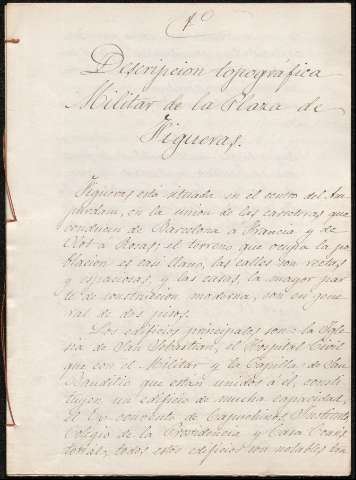 1º
Descripcion topográfica
Militar de la Plaza de
Figueras.
Figueras está situada en el centro del Am-
purdam, en la union de las carreteras que
conducen de Barcelona a Francia y de
Olot a Rosas; el terreno que ocupa la po-
blacion es casi llano, las calles son rectas
y espaciosas, y las casas, la mayor par-
te de construccion moderna, son en gene-
ral de dos pisos.
Los edificios principales son: la Igle-
sia de San Sebastian, el Hospital Civil
que con el Militar y la Capilla de San
Baudilio que están unidos á él, consti-
tuyen un edificio de mucha capacidad,
el Ex-convento de Capuchinos, Instituto,
Colegio de la Providencia y Casa Consis-
torial; todos estos edificios son notables tan